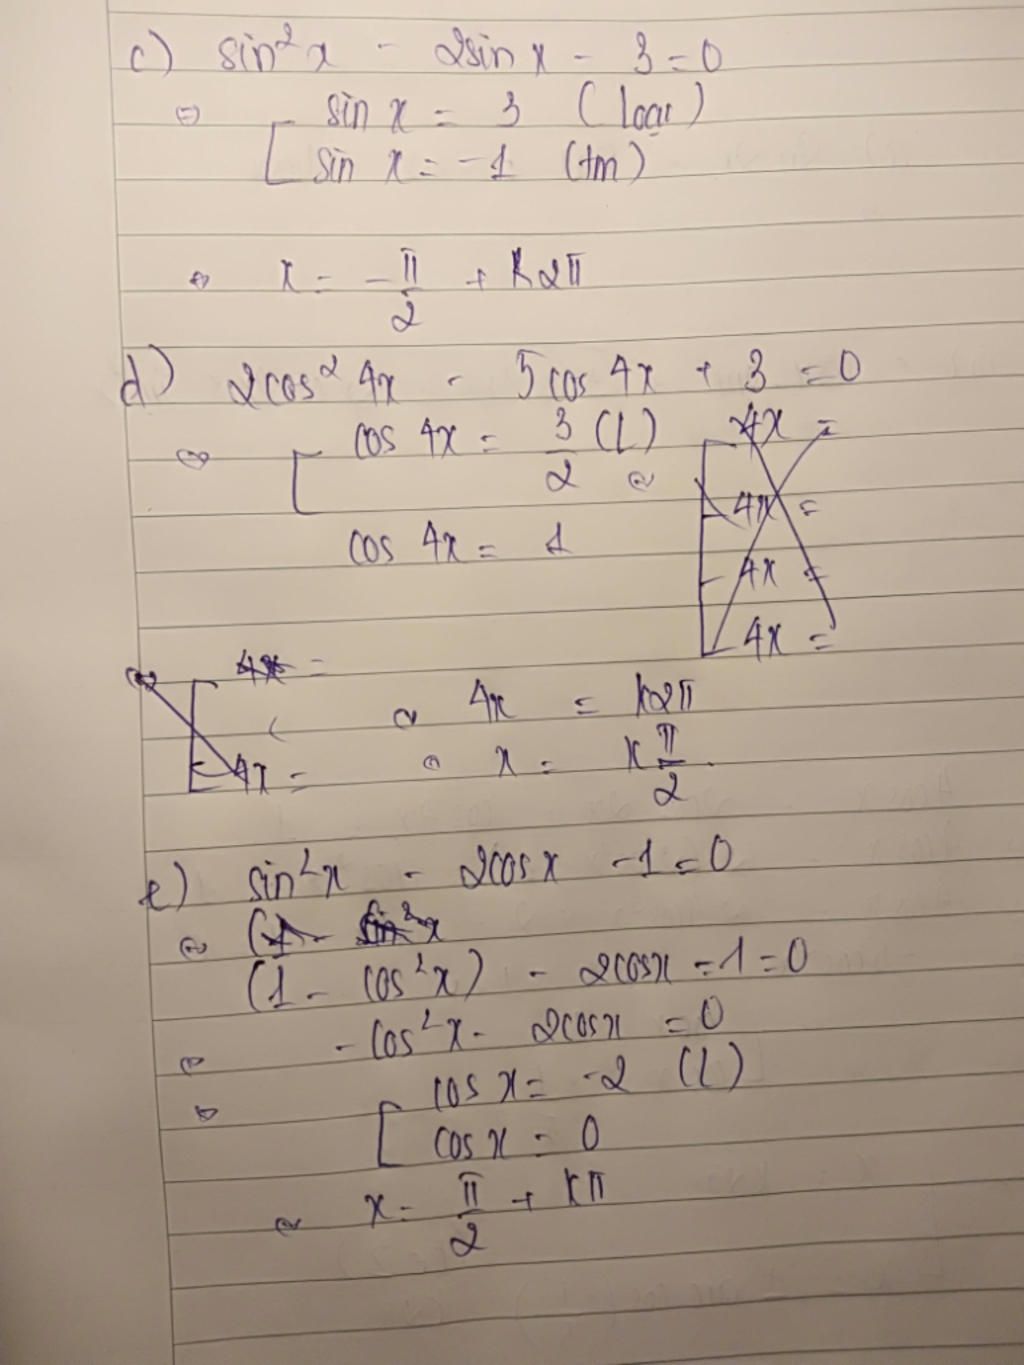 c) sin²x - 2sin x - 3 = 0
⇔ [ sin x = 3 (loại)
sin x = -1 (tm)
⇔ x = -π/2 + k2π
d) 2cos² 4x - 5cos 4x + 3 = 0
⇔ [ cos 4x = 3/2 (L)
cos 4x = 1
⇔ [ 4x =
4x =
4x =
4x =
⇔ [ 4x =
4x =
⇔ 4x = k2π
⇔ x = k π/2.
e) sin²x - 2cos x - 1 = 0
⇔ (1 - sin²x
(1 - cos²x) - 2cosx - 1 = 0
⇔ - cos²x - 2cosx = 0
⇔ [ cos x = -2 (L)
cos x = 0
⇔ x = π/2 + kπ